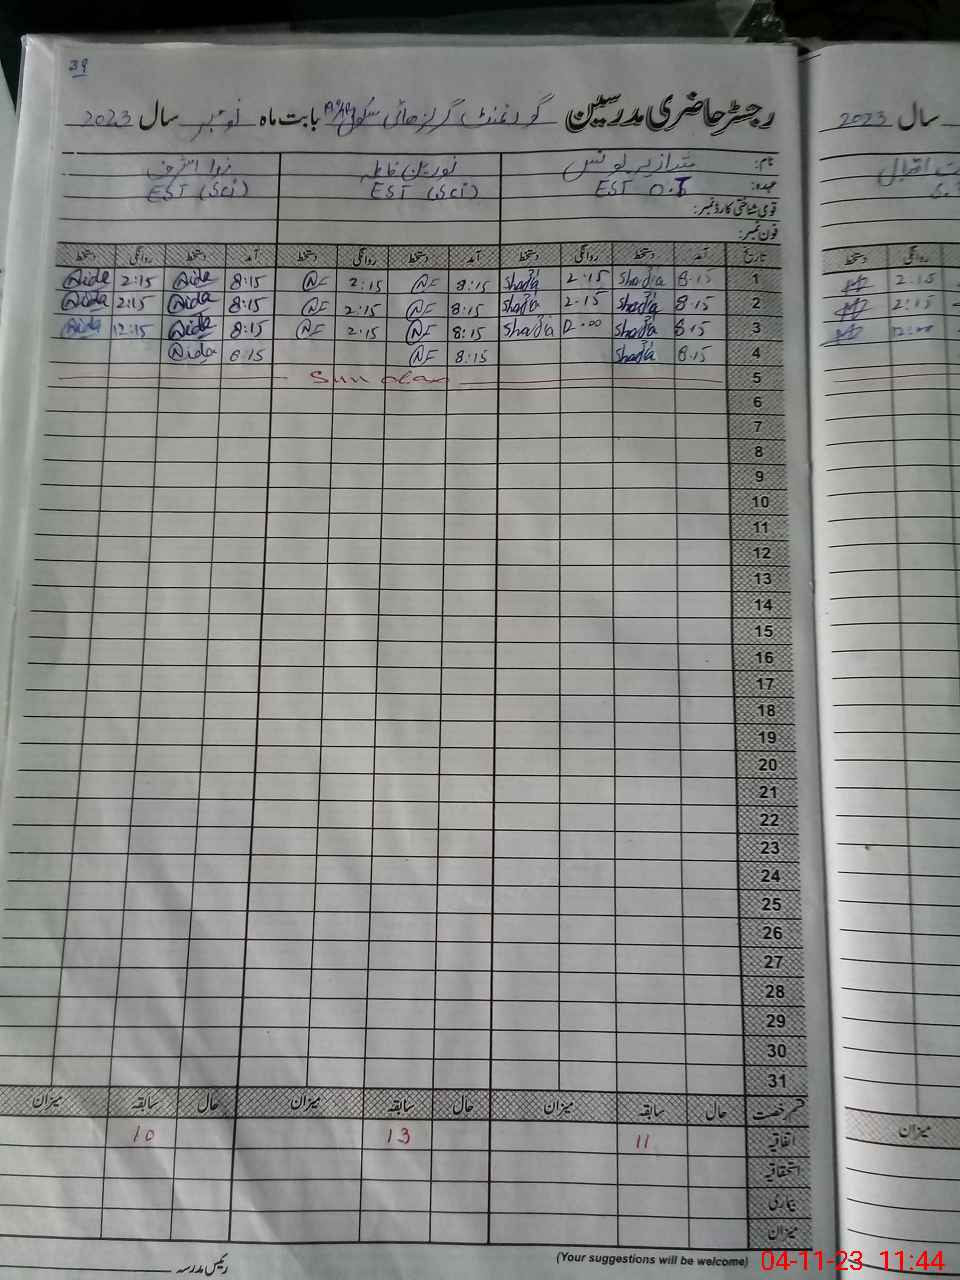 39
رجسٹر حاضری مدرسین گورنمنٹ گرلز ہائی سکول بابت ماہ نومبر سال 2023
نام: شازیہ یونس نورین فاطمہ
عہدہ: EST O.T EST (Sci) EST (Sci)
قومی شناختی کارڈ نمبر:
فون نمبر:
تاریخ آمد دستخط روانگی دستخط آمد دستخط روانگی دستخط آمد دستخط روانگی دستخط
1 8:15 Shadia 2:15 Shadia 8:15 NF 2:15 NF 8:15 Aida 2:15 Aida
2 8:15 Shadia 2:15 Shadia 8:15 NF 2:15 NF 8:15 Aida 2:15 Aida
3 8:15 Shadia 12:00 Shadia 8:15 NF 2:15 NF 8:15 Aida 12:15 Aida
4 8:15 Shadia 8:15 NF 8:15 Aida
5 Sunday
6
7
8
9
10
11
12
13
14
15
16
17
18
19
20
21
22
23
24
25
26
27
28
29
30
31
قسم رخصت حال سابقہ میزان حال سابقہ میزان حال سابقہ میزان
اتفاقیہ 11 13 10
استحقاقیہ
بیماری
میزان
(Your suggestions will be welcome)
رئیس مدرسہ
سال 2023
اقبال
روانگی دستخط
2:15
2:15
12:00
میزان
04-11-23 11:44